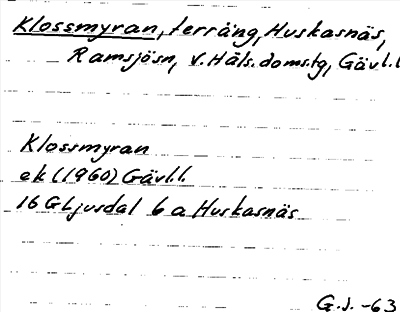 Klossmyran, terräng, Huskasnäs,
Ramsjösn, V. Häls. doms.tg, Gävl.l
Klossmyran
ek (1960) Gävl.l.
16 G Ljusdal 6 a Huskasnäs
G.J. -63